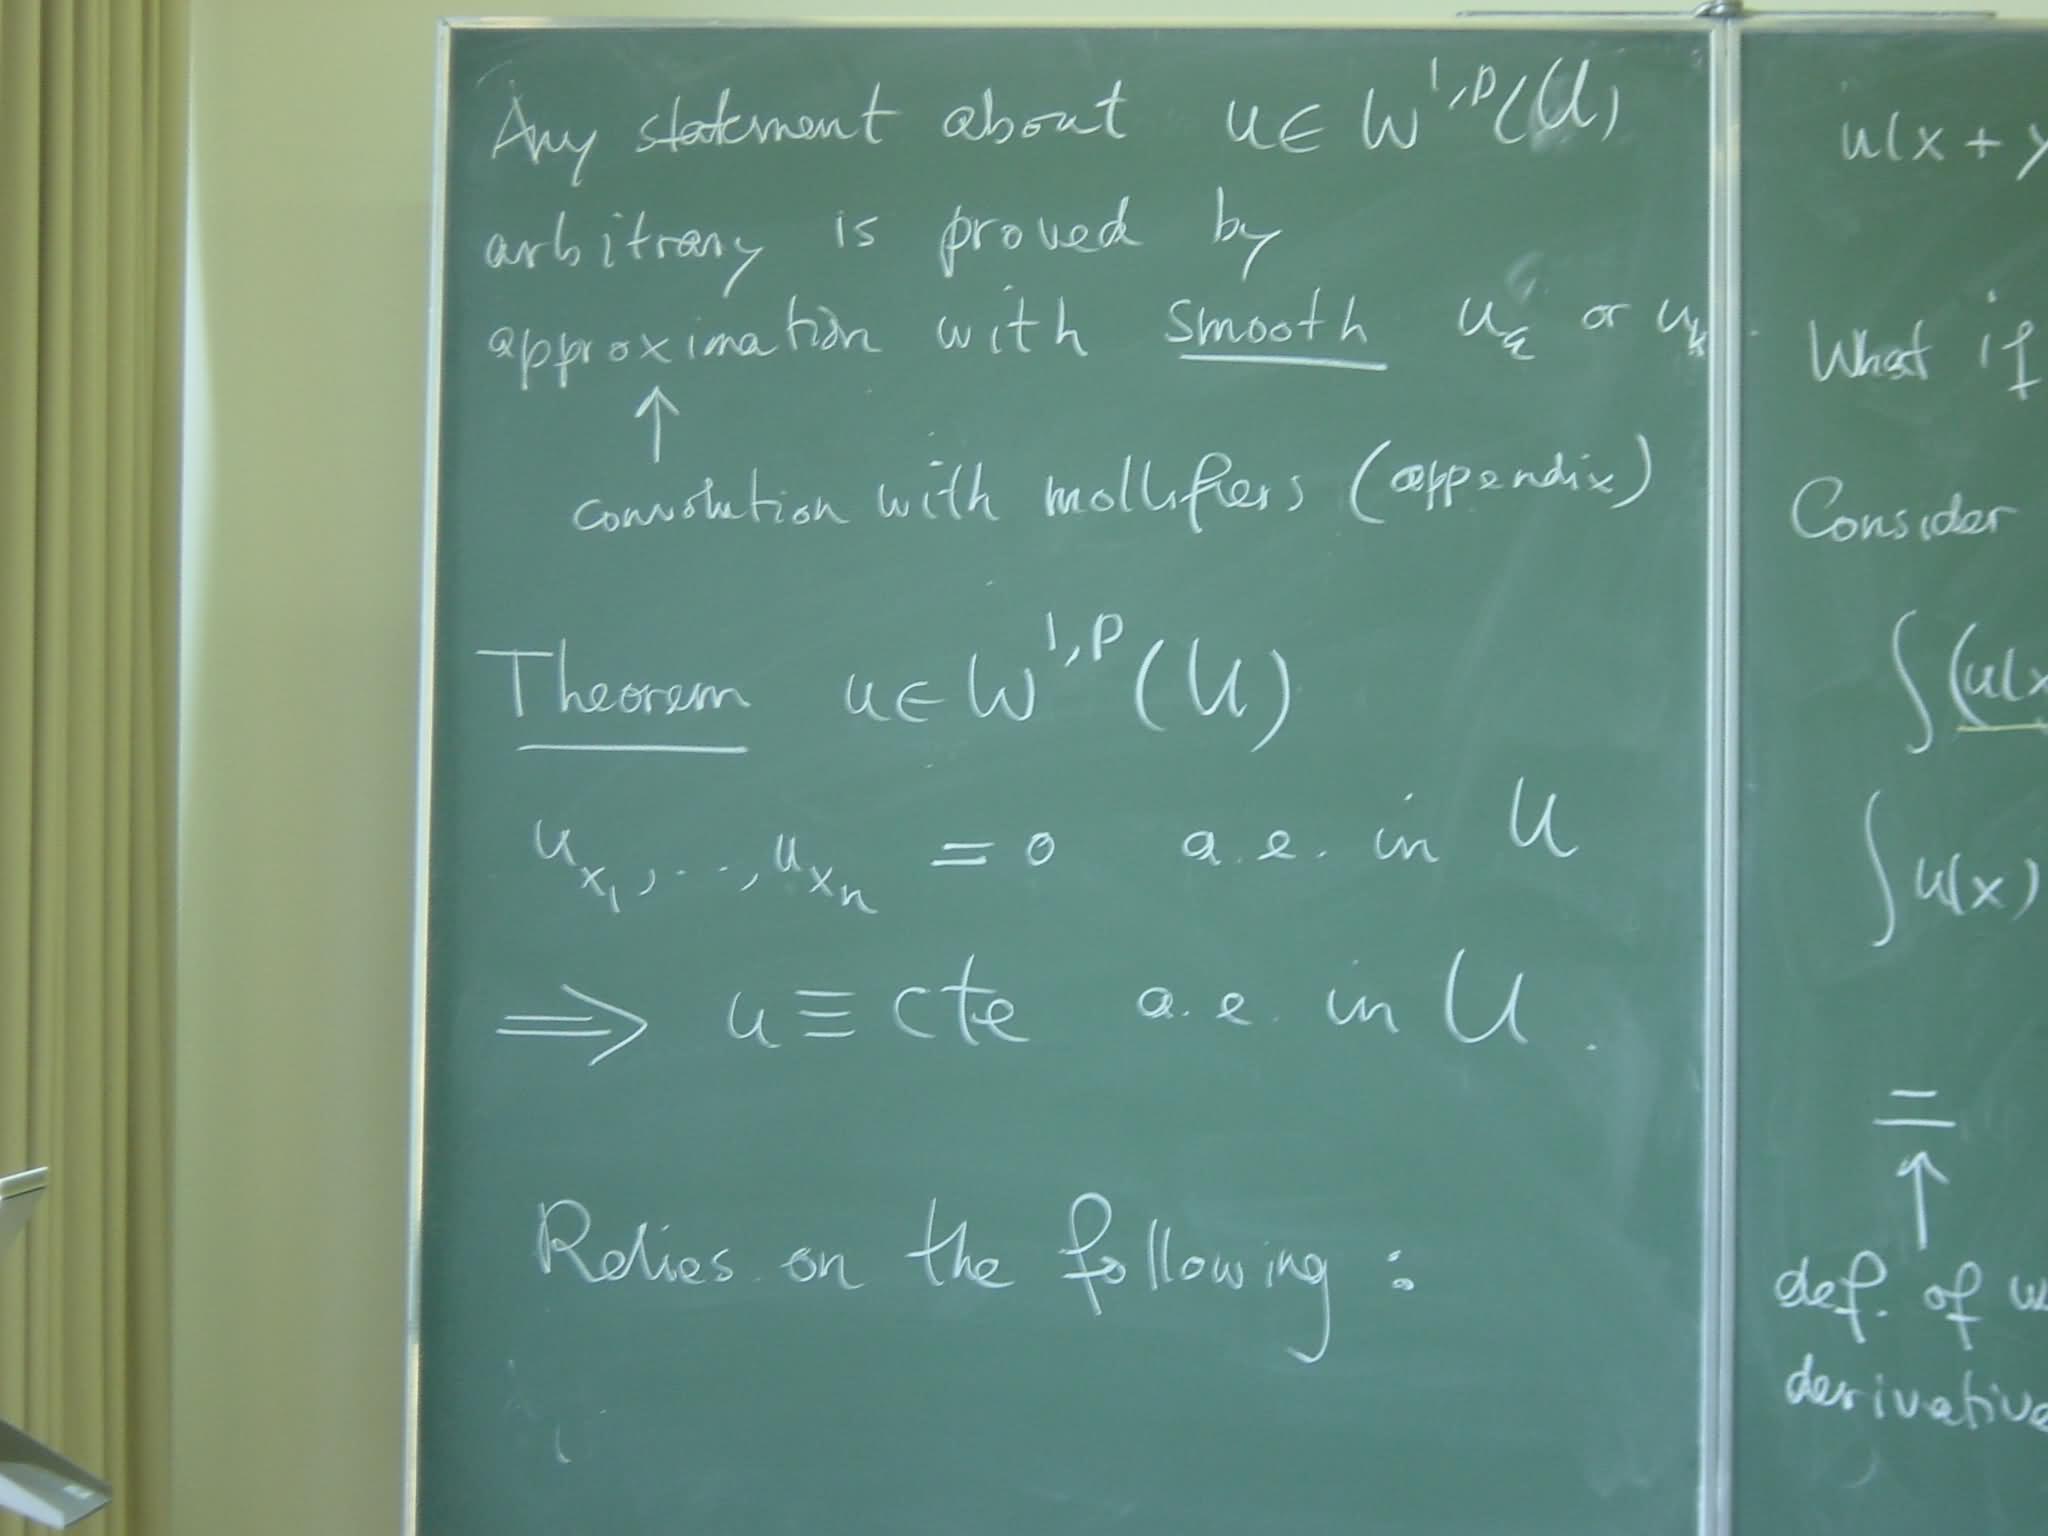 Any statement about u ∈ W^{1,p}(U)
arbitrary is proved by
approximation with smooth u_ε or u_k.
↑
convolution with mollifiers (appendix)
Theorem u ∈ W^{1,p}(U)
u_{x_1}, ..., u_{x_n} = 0 a.e. in U
⟹ u ≡ cte a.e. in U.
Relies on the following:
u(x + y
What if
Consider
∫(u(x
∫u(x)
=
↑
def. of w
derivative